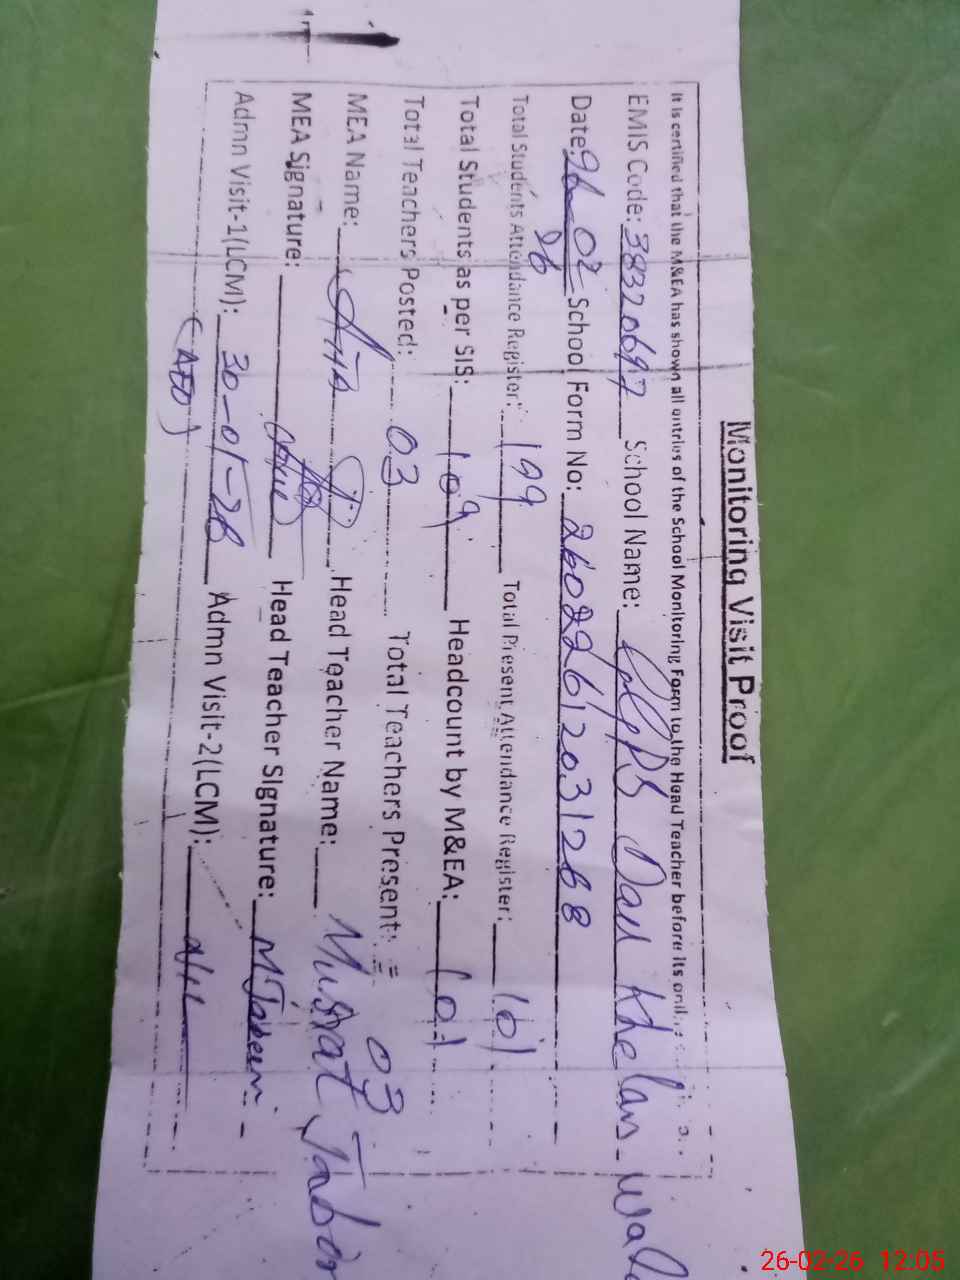 Monitoring Visit Proof
It is certified that the M&EA has shown all entries of the School Monitoring Form to the Head Teacher before its
EMIS Code: 38320697 School Name: GGPS Dau Khelan wala
Date: 26-02-26 School Form No: 26022612031268
Total Students Attendance Register: 199 Total Present Attendance Register: 101
Total Students as per SIS: 109 Headcount by M&EA: 101
Total Teachers Posted: 03 Total Teachers Present: = 03
MEA Name: Head Teacher Name: Musrat
MEA Signature: Head Teacher Signature:
Admn Visit-1(LCM): 30-01-26 Admn Visit-2(LCM): NIL
(AEO)
26-02-26 12:05